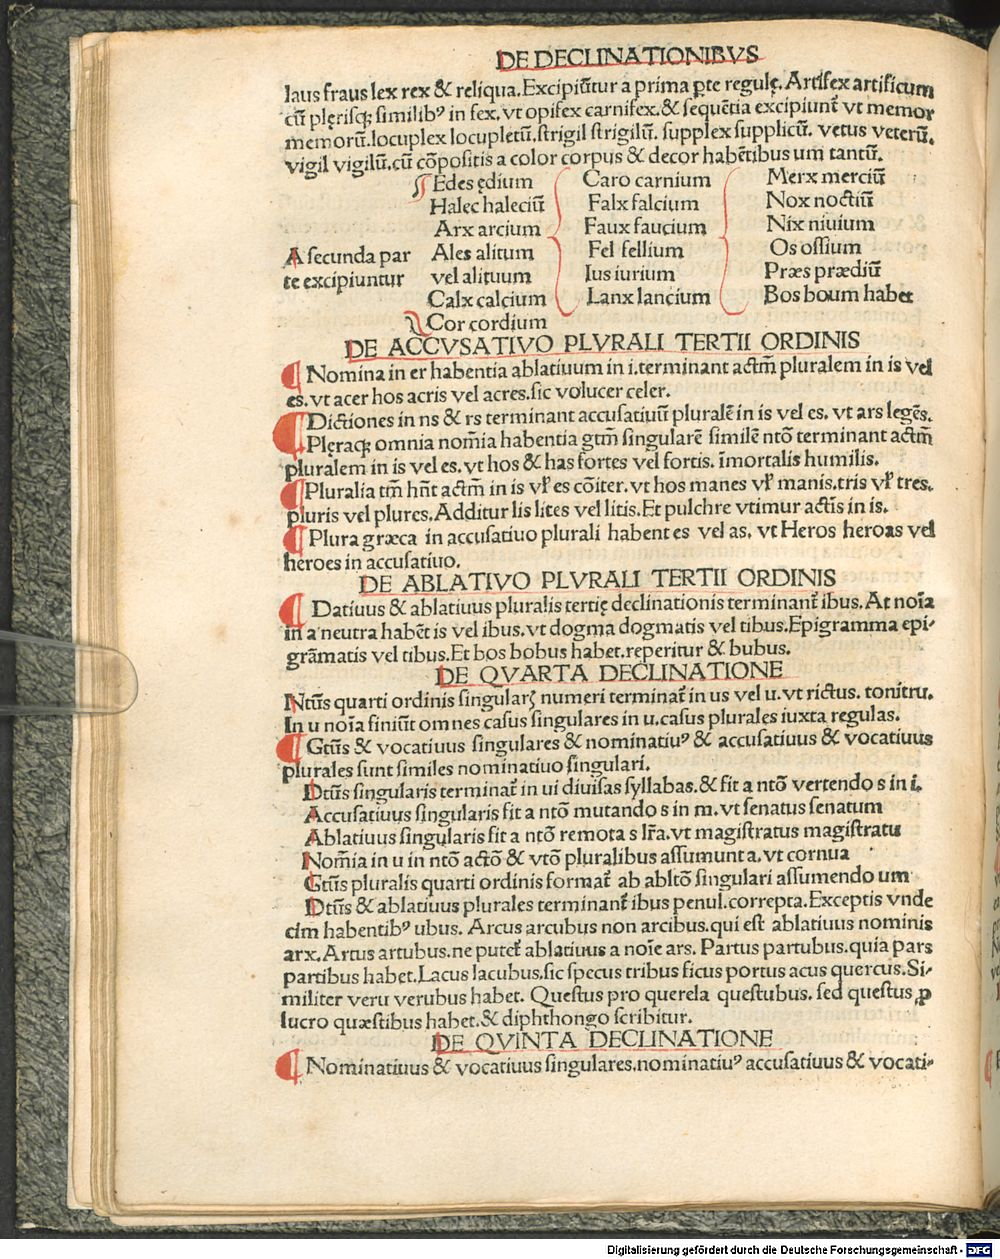 DE DECLINATIONIBVS
laus fraus lex rex & reliqua. Excipiūtur a prima ꝑte regulę. Artifex artificum
cū plęrisꝗ; similibꝰ in fex. vt opifex carnifex. & sequētia excipiunt̄ vt memor
memorū. locuplex locupletū. strigil strigilū. supplex supplicū. vetus veterū.
vigil vigilū. cū cōpositis a color corpus & decor habētibus um tantū.
Edes ędium Caro carnium Merx merciū
Halec haleciū Falx falcium Nox noctiū
Arx arcium Faux faucium Nix niuium
A secunda par Ales alitum Fel fellium Os ossium
te excipiuntur vel alituum Ius iurium Præs prædiū
Calx calcium Lanx lancium Bos boum habet
Cor cordium
DE ACCVSATIVO PLVRALI TERTII ORDINIS
¶ Nomina in er habentia ablatiuum in i. terminant actm̄ pluralem in is vel
es. vt acer hos acris vel acres. sic volucer celer.
¶ Dictiones in ns & rs terminant accusatiuū pluralē in is vel es. vt ars legēs.
Plęraqꝫ omnia nom̄ia habentia gtm̄ singularē similē ntō terminant actm̄
pluralem in is vel es. vt hos & has fortes vel fortis. īmortalis humilis.
¶ Pluralia tm̄ hn̄t actm̄ in is vl̓ es cōiter. vt hos manes vl̓ manis. tris vl̓ tres.
pluris vel plures. Additur lis lites vel litis. Et pulchre vtimur actīs in is.
¶ Plura græca in accusatiuo plurali habent es vel as. vt Heros heroas vel
heroes in accusatiuo.
DE ABLATIVO PLVRALI TERTII ORDINIS
¶ Datiuus & ablatiuus pluralis tertię declinationis terminant̄ ibus. At noīa
in a neutra habēt is vel ibus. vt dogma dogmatis vel tibus. Epigramma epi-
grāmatis vel tibus. Et bos bobus habet. reperitur & bubus.
DE QVARTA DECLINATIONE
Ntūs quarti ordinis singularꝫ numeri terminat̄ in us vel u. vt rictus. tonitru.
In u noīa finiūt omnes casus singulares in u. casus plurales iuxta regulas.
¶ Gtūs & vocatiuus singulares & nominatiuꝰ & accusatiuus & vocatiuus
plurales sunt similes nominatiuo singulari.
Dtūs singularis terminat̄ in ui diuisas syllabas. & fit a ntō vertendo s in i.
Accusatiuus singularis fit a ntō mutando s in m. vt senatus senatum
Ablatiuus singularis fit a ntō remota s lr̄a. vt magistratus magistratu
Nom̄ia in u in ntō actō & vtō pluralibus assumunt a. vt cornua
Gtūs pluralis quarti ordinis format̄ ab abltō singulari assumendo um
Dtūs & ablatiuus plurales terminant̄ ibus penul. correpta. Exceptis vnde
cīm habentibꝰ ubus. Arcus arcubus non arcibus. qui est ablatiuus nominis
arx. Artus artubus. ne putet̄ ablatiuus a noīe ars. Partus partubus. quia pars
partibus habet. Lacus lacubus. sic specus tribus ficus portus acus quercus. Si-
militer veru verubus habet. Questus pro querela questubus. sed questus ꝓ
lucro quæstibus habet. & diphthongo scribitur.
DE QVINTA DECLINATIONE
¶ Nominatiuus & vocatiuus singulares. nominatiuꝰ accusatiuus & vocati-
Digitalisierung gefördert durch die Deutsche Forschungsgemeinschaft - DFG